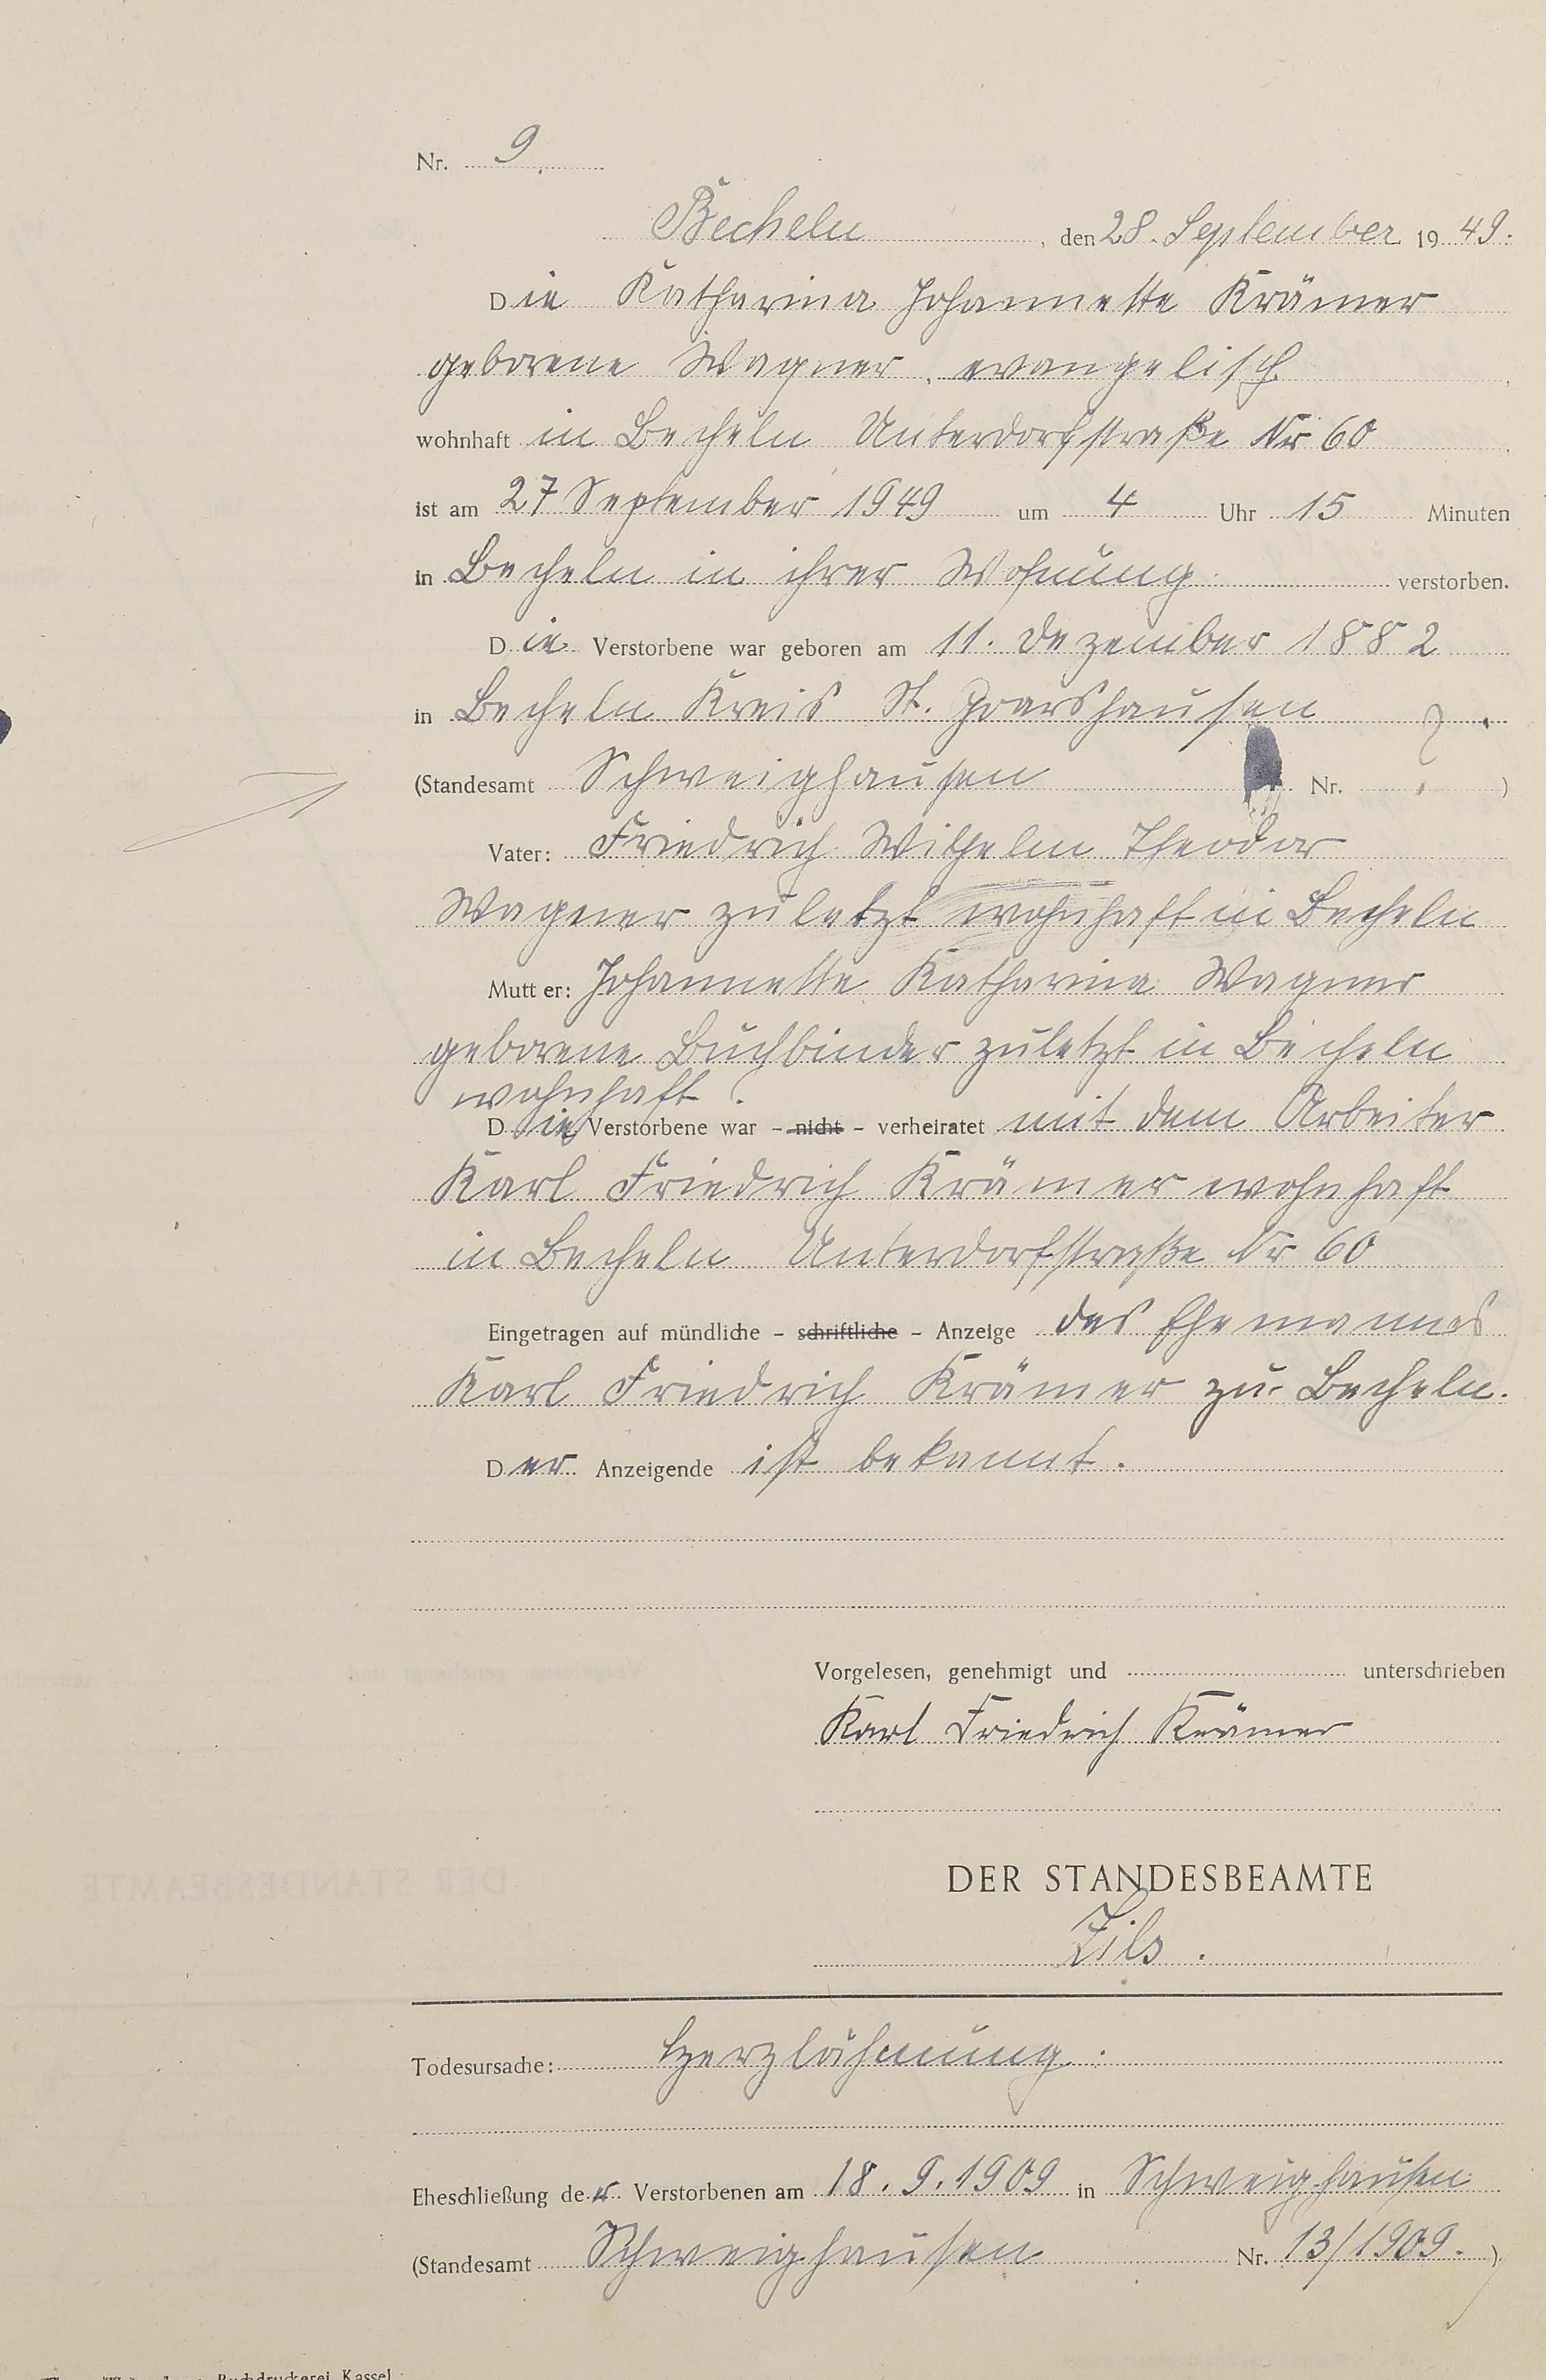 Nr. 9.
Becheln, den 28. September 1949.
Die Katharina Johannette Krämer
geborene Wagner, evangelisch,
wohnhaft in Becheln Unterdorfstraße Nr 60,
ist am 27 September 1949 um 4 Uhr 15 Minuten
in Becheln in ihrer Wohnung verstorben.
Die Verstorbene war geboren am 11. Dezember 1882
in Becheln Kreis St. Goarshausen.
(Standesamt Schweighausen Nr. ? )
Vater: Friedrich Wilhelm Theodor
Wagner zuletzt wohnhaft in Becheln
Mutter: Johannette Katharina Wagner
geborene Buchbinder zuletzt in Becheln
wohnhaft.
Die Verstorbene war – nicht – verheiratet mit dem Arbeiter
Karl Friedrich Krämer wohnhaft
in Becheln Unterdorfstraße Nr 60
Eingetragen auf mündliche – schriftliche – Anzeige des Ehemannes
Karl Friedrich Krämer zu Becheln.
Der Anzeigende ist bekannt.
Vorgelesen, genehmigt und unterschrieben
Karl Friedrich Krämer
DER STANDESBEAMTE
Zils.
Todesursache: Herzlähmung.
Eheschließung der Verstorbenen am 18.9.1909 in Schweighausen
(Standesamt Schweighausen Nr. 13/1909.)
Buchdruckerei Kassel